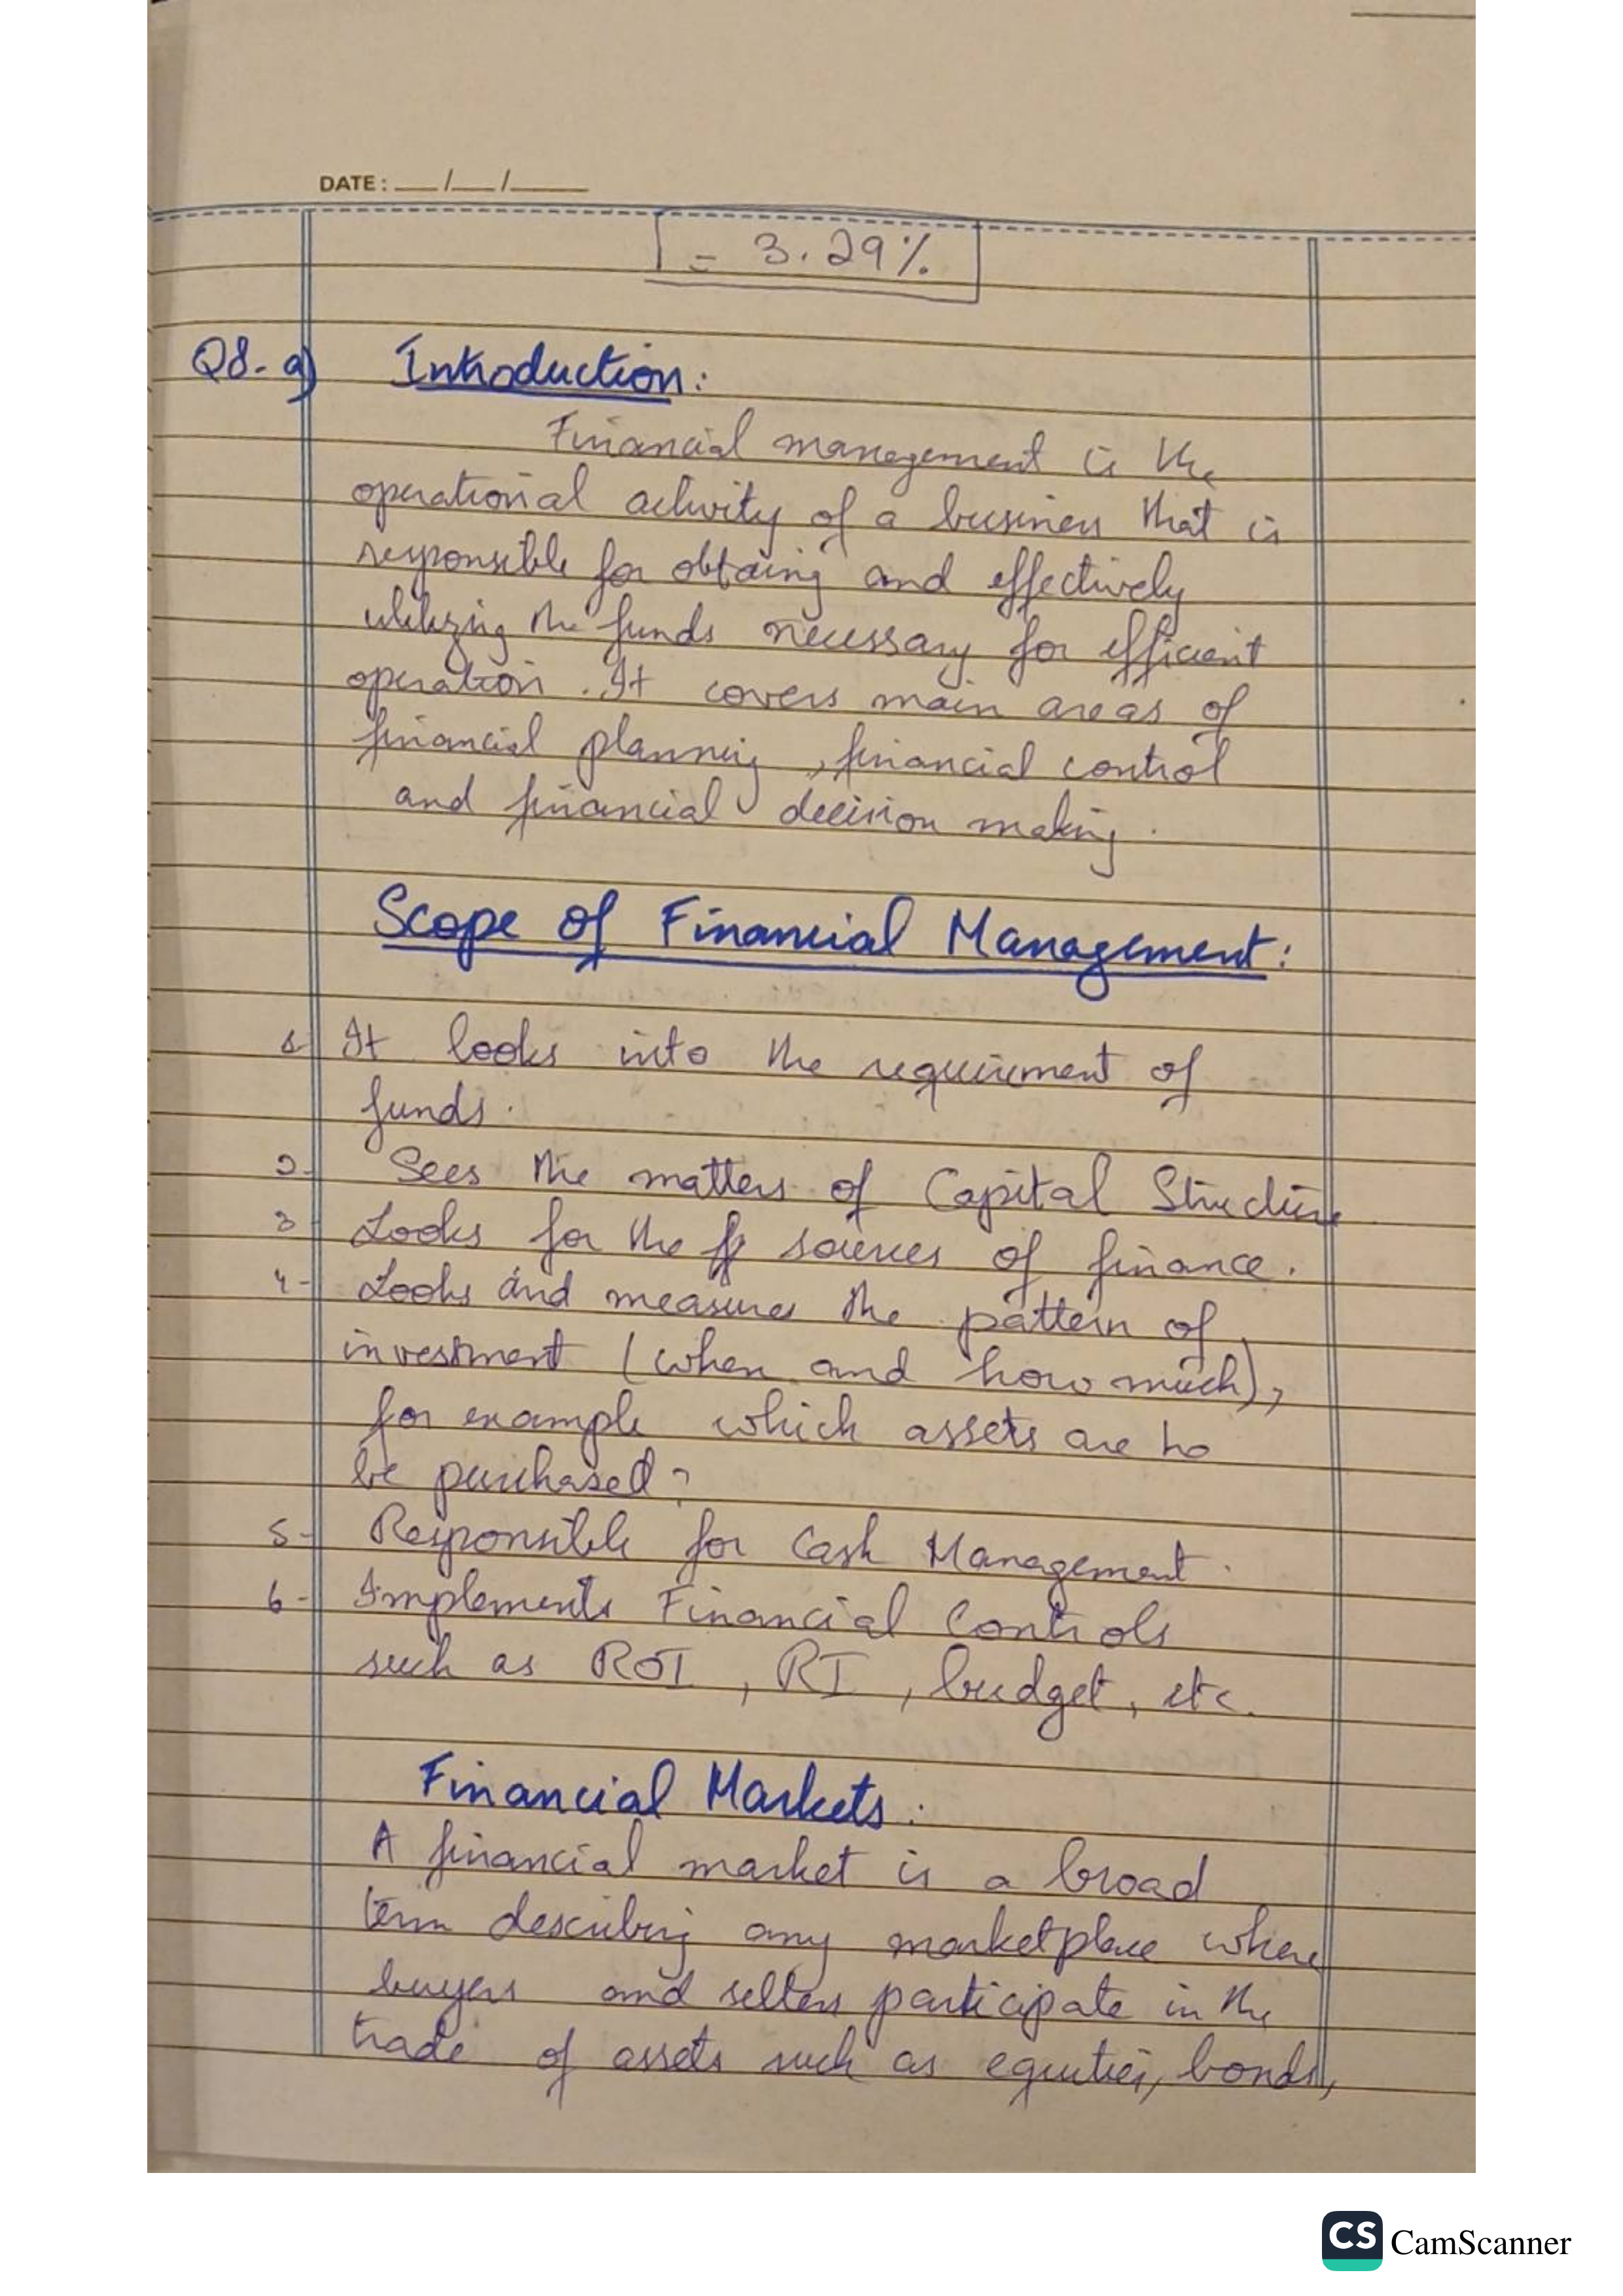 DATE: __/__/____
= 3.29%
Q8- a) Introduction:
Financial management is the
operational activity of a business that is
responsible for obtaing and effectively
utilizing the funds necessary for efficient
operation. It covers main areas of
financial planning, financial control
and financial decision making.
Scope of Financial Management:
1- It looks into the requirement of
funds.
2- Sees the matters of Capital Structure
3- Looks for the sources of finance.
4- Looks and measures the pattern of
investment (when and how much),
for example which assets are to
be purchased?
5- Responsible for Cash Management.
6- Implements Financial Controls
such as ROI, RI, budget, etc.
Financial Markets:
A financial market is a broad
term describing any marketplace where
buyers and sellers participate in the
trade of assets such as equities, bonds,
CS CamScanner